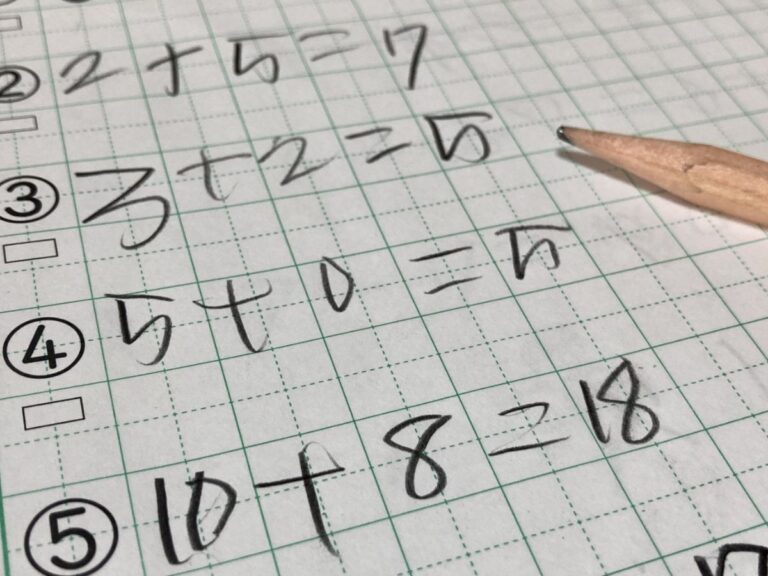 ② 2+5=7
③ 3+2=5
④ 5+0=5
⑤ 10+8=18